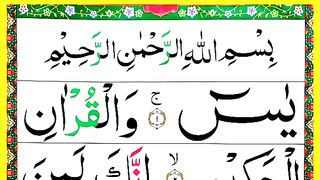 بِسْمِ اللهِ الرَّحْمٰنِ الرَّحِيْمِ
يٰسٓ ۚ ۝١ وَالْقُرْاٰنِ
الْحَكِيْمِ ۙ ۝٢ اِنَّكَ لَمِنَ